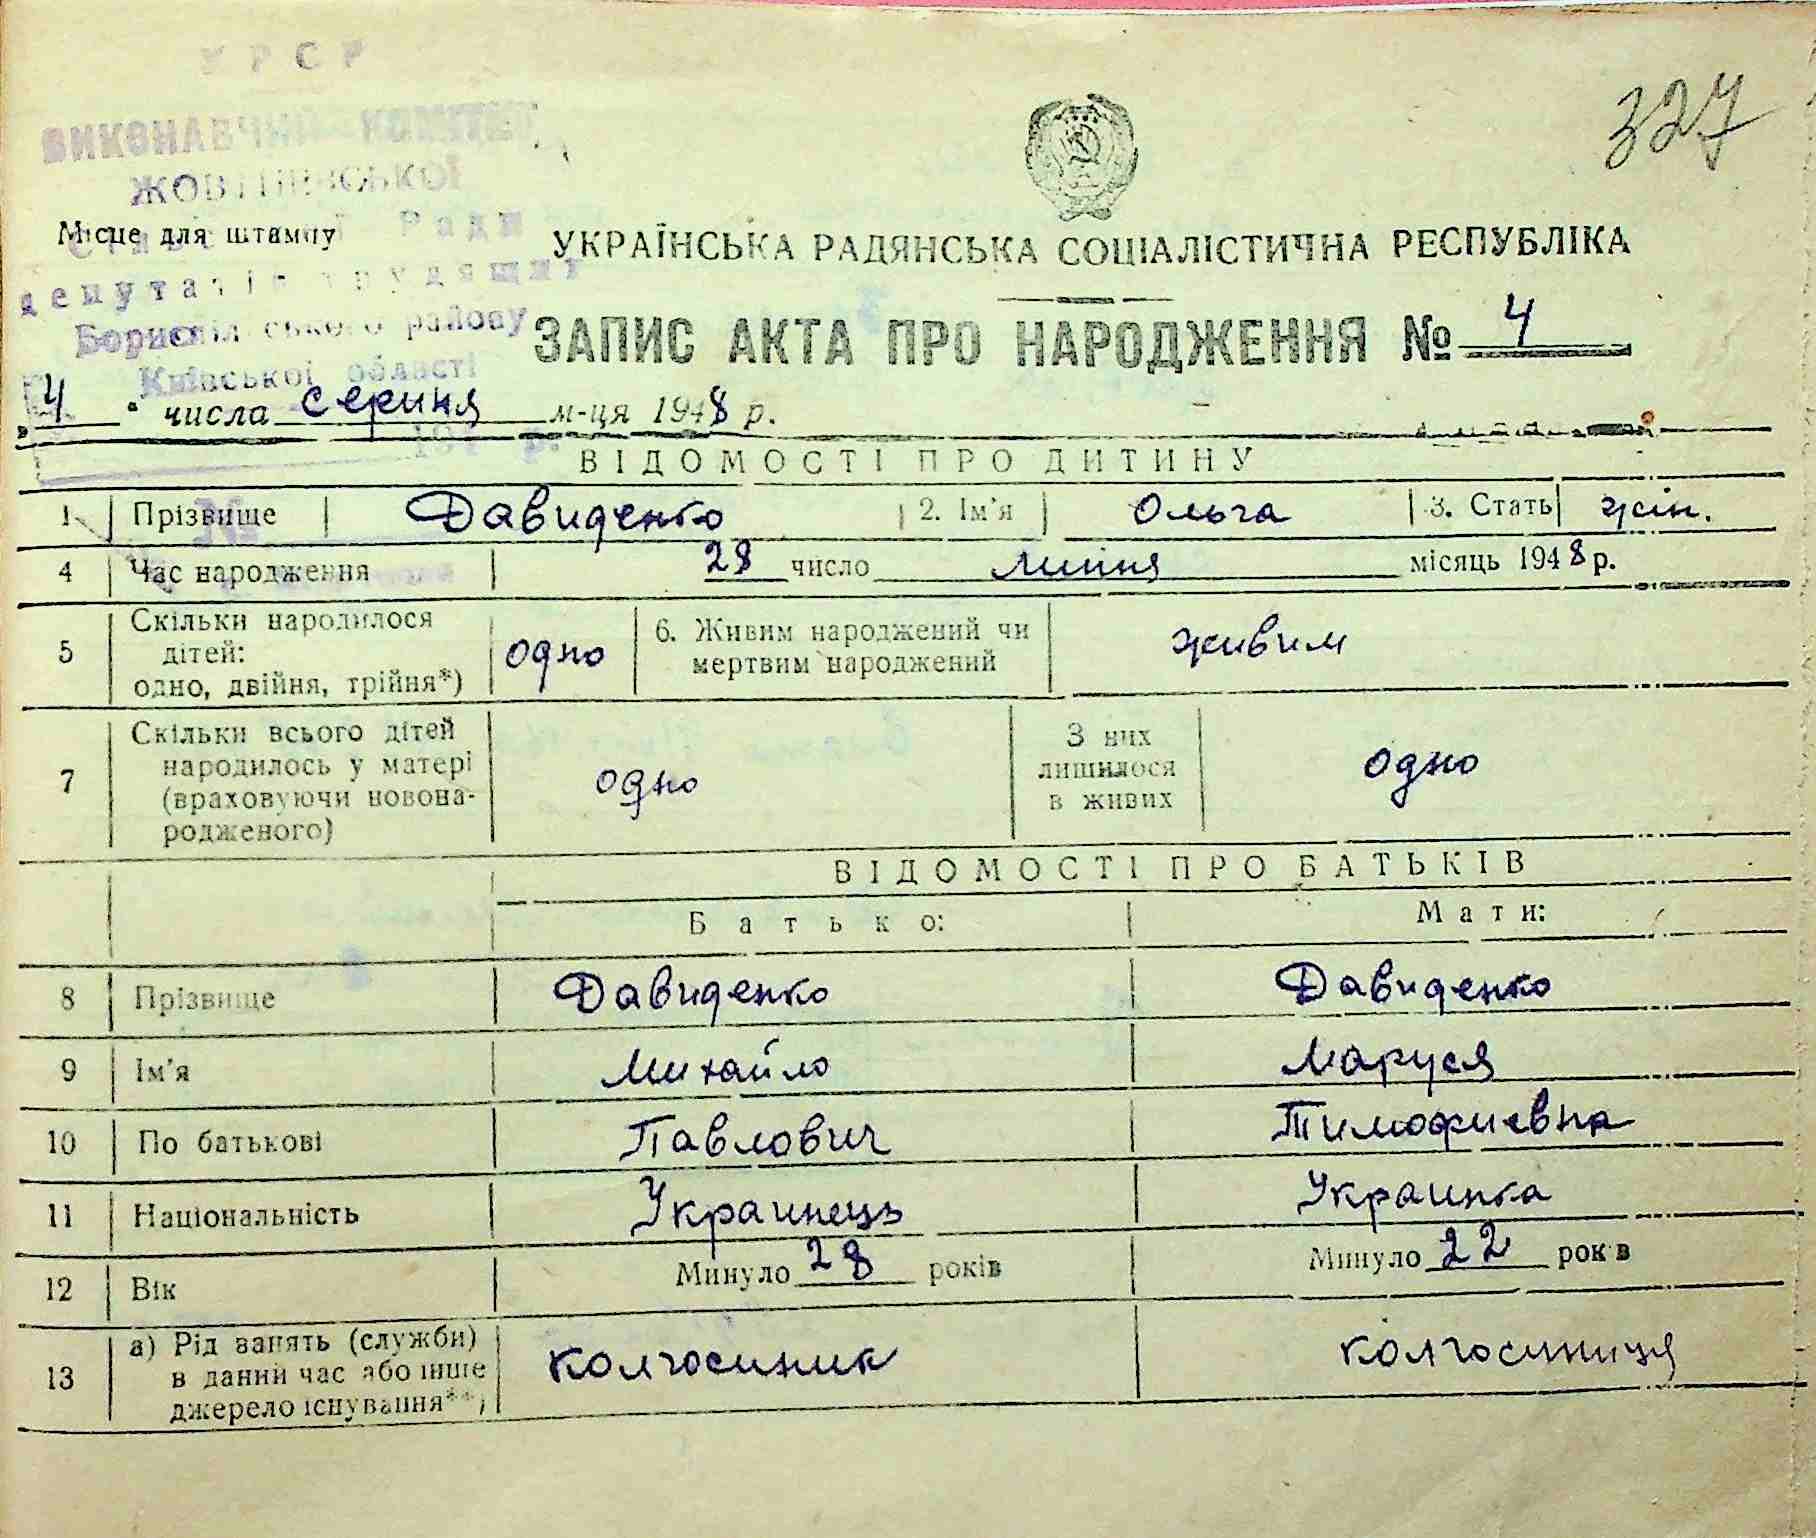 УРСР
327
ВИКОНАВЧИЙ КОМІТЕТ
ЖОВТНЕВСЬКОЇ
Сільської Ради
Місце для штампу
депутатів трудящих
Бориспільського району
Київської області
УКРАЇНСЬКА РАДЯНСЬКА СОЦІАЛІСТИЧНА РЕСПУБЛІКА
ЗАПИС АКТА ПРО НАРОДЖЕННЯ № 4
„4" числа серпня м-ця 1948 р.
194 р.
ВІДОМОСТІ ПРО ДИТИНУ
1 Прізвище Давиденко 2. Ім'я Ольга 3. Стать жін.
4 Час народження 28 число липня місяць 1948 р.
5 Скільки народилося дітей: одно, двійня, трійня*) одно 6. Живим народжений чи мертвим народжений живим
7 Скільки всього дітей народилось у матері (враховуючи новонародженого) одно З них лишилося в живих одно
ВІДОМОСТІ ПРО БАТЬКІВ
Батько: Мати:
8 Прізвище Давиденко Давиденко
9 Ім'я Михайло Маруся
10 По батькові Павлович Тимофиевна
11 Національність Украинець Украинка
12 Вік Минуло 28 років Минуло 22 років
13 а) Рід занять (служби) в даний час або інше джерело існування**) колгоспник колгоспниця